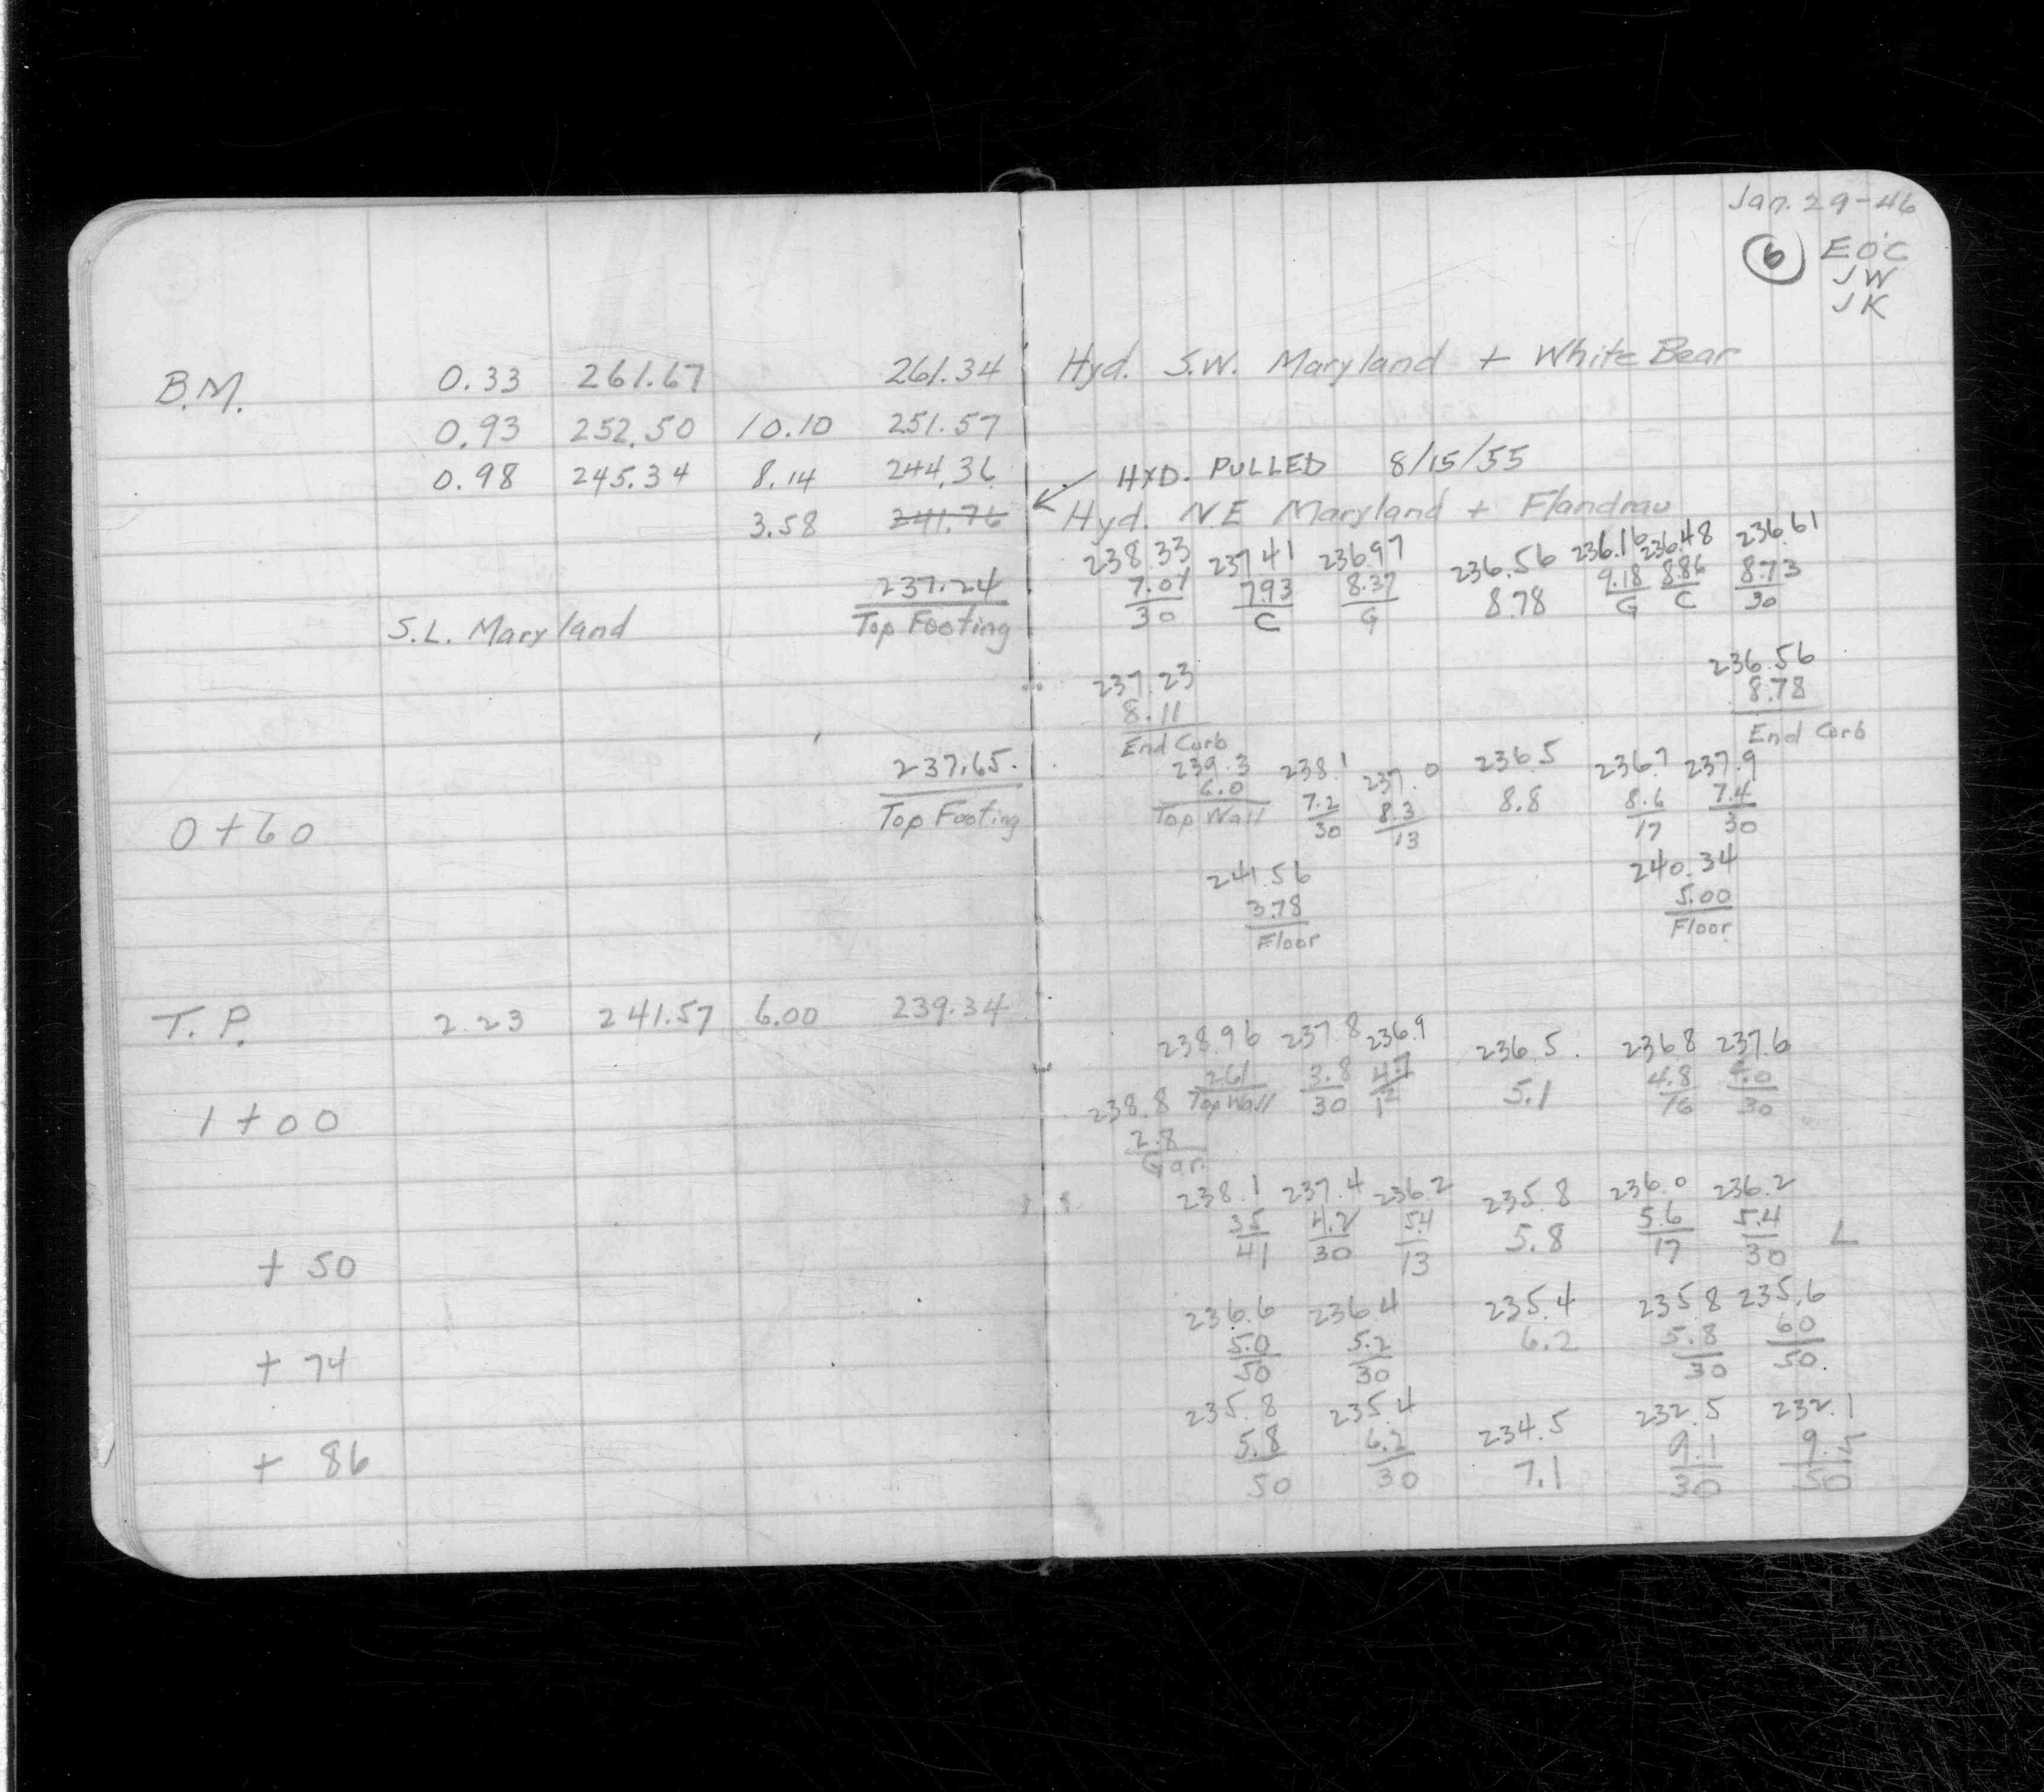 Jan. 29-46
6 EO'C
JW
JK
B.M. 0.33 261.67 261.34 Hyd. S.W. Maryland + White Bear
0.93 252.50 10.10 251.57
0.98 245.34 8.14 244.36 HYD. PULLED 8/15/55
3.58 241.76 Hyd. NE Maryland + Flandrau
238.33 237 41 236 97 236.56 236.16 236.48 236 61
237.24 7.01 793 8.37 8.78 9.18 8.86 8.73
S.L. Maryland Top Footing 30 C G G C 30
237.23 236.56
8.11 8.78
End Curb End Curb
237.65. 239.3 238.1 237.0 236.5 236.7 237.9
6.0 7.2 8.3 8.8 8.6 7.4
0+60 Top Footing Top Wall 30 13 17 30
241.56 240.34
3.78 5.00
Floor Floor
T.P. 2.23 241.57 6.00 239.34
238.96 237.8 236.9 236.5. 236.8 237.6
261 3.8 4.7 5.1 4.8 4.0
1+00 238.8 Top Wall 30 12 16 30
2.8
Gar.
238.1 237.4 236.2 235.8 236.0 236.2
3.5 4.2 5.4 5.8 5.6 5.4 L
+50 41 30 13 17 30
236.6 236.4 235.4 235.8 235.6
5.0 5.2 6.2 5.8 60
+74 50 30 30 50.
235.8 235.4 234.5 232.5 232.1
5.8 6.2 7.1 9.1 9.5
+86 50 30 30 50